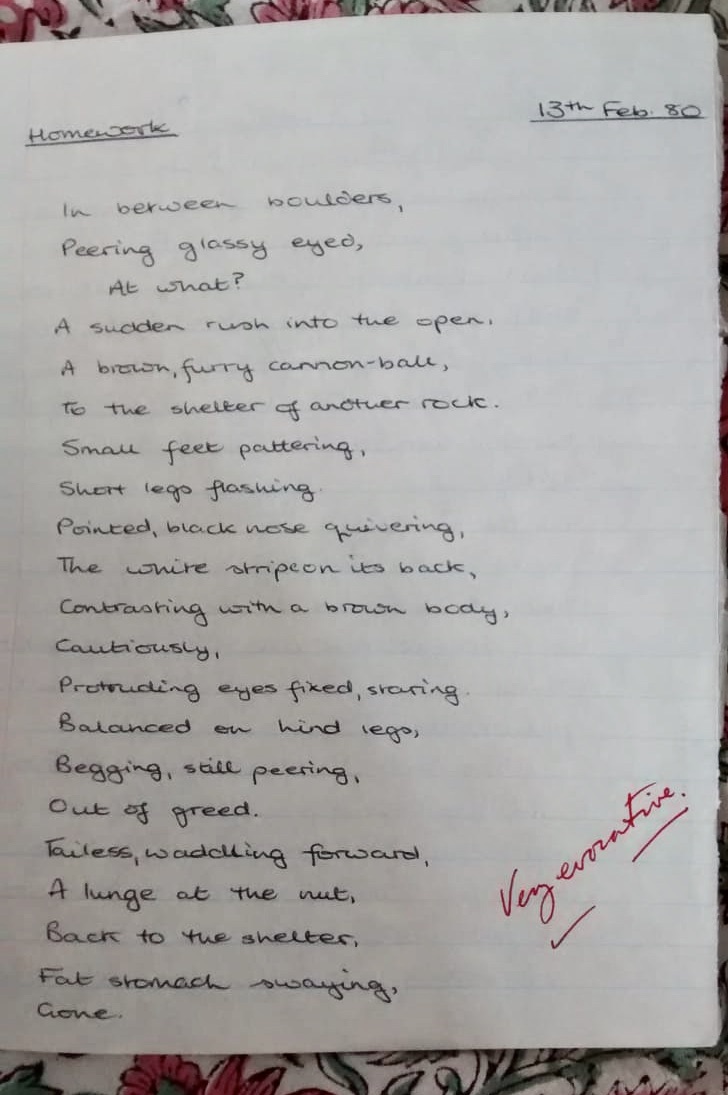 Homework
13th Feb. 80
In between boulders,
Peering glassy eyed,
At what?
A sudden rush into the open.
A brown, furry cannon-ball,
To the shelter of another rock.
Small feet pattering,
Short legs flashing.
Pointed, black nose quivering,
The white stripe on its back,
Contrasting with a brown body,
Cautiously,
Protruding eyes fixed, staring.
Balanced on hind legs,
Begging, still peering,
Out of greed.
Tailess, waddling forward,
A lunge at the nut,
Back to the shelter,
Fat stomach swaying,
Gone.
Very evocative.
✓